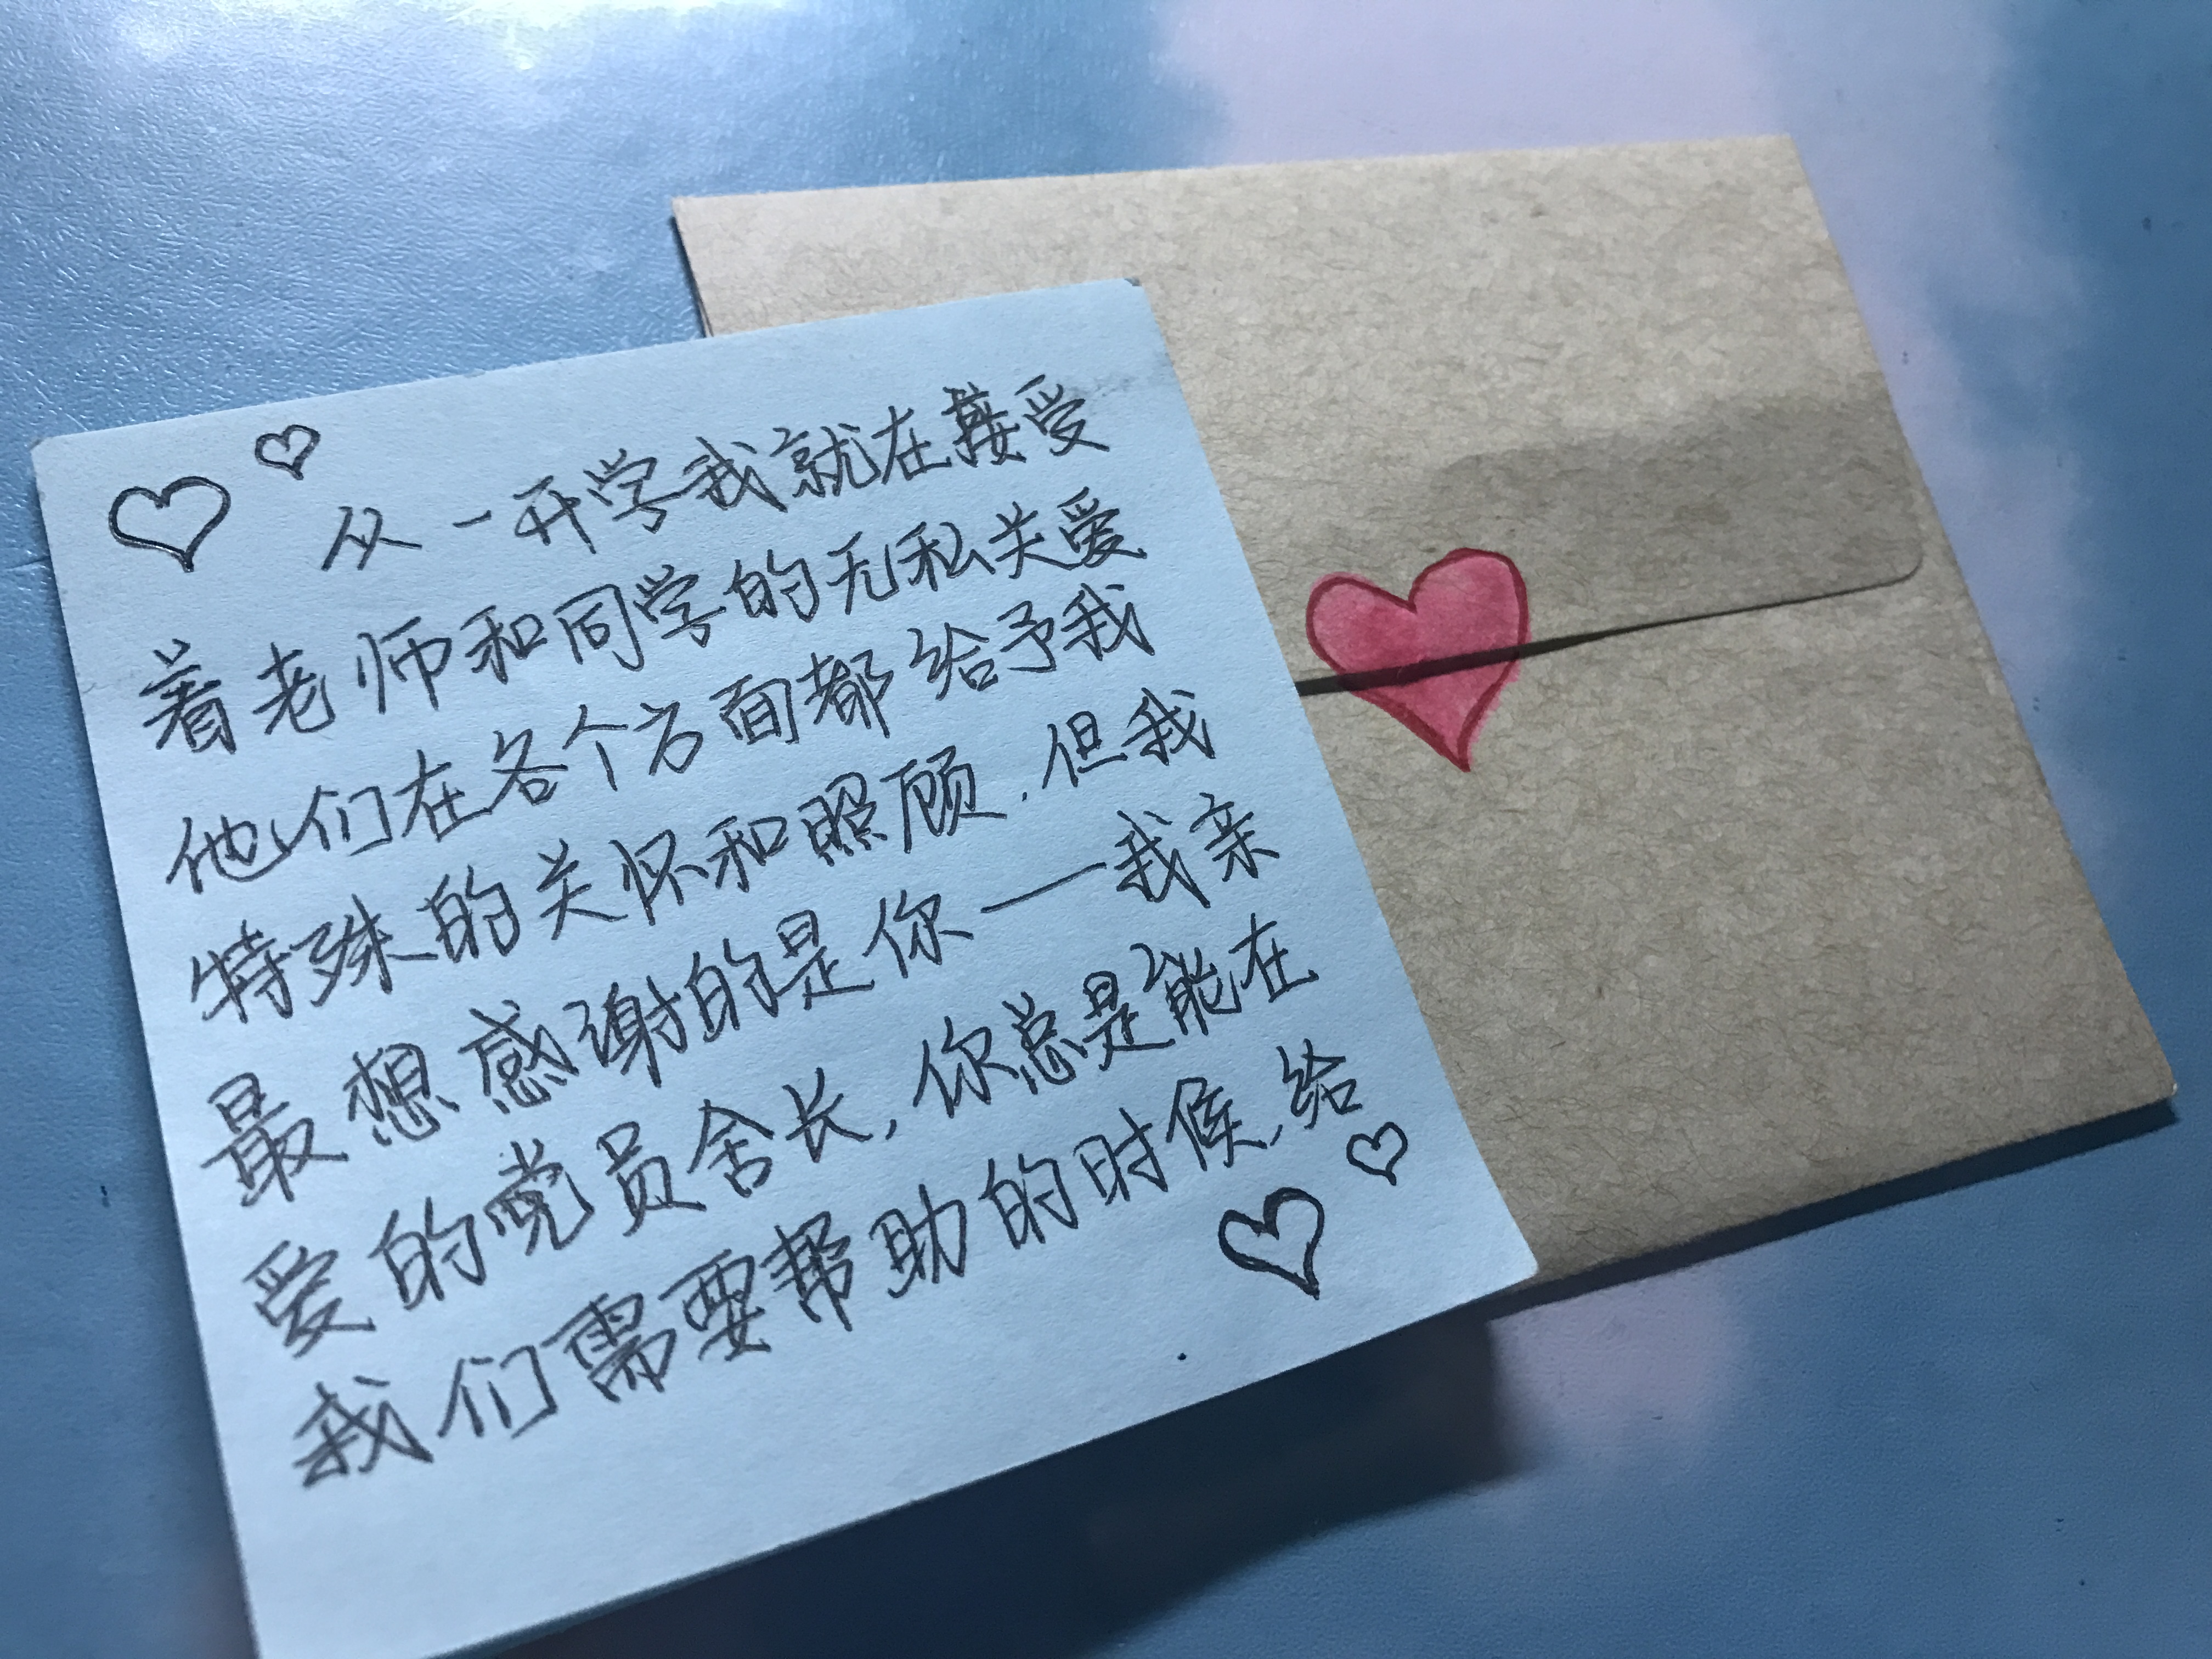 从一开学我就在接受
着老师和同学的无私关爱
他们在各个方面都给予我
特殊的关怀和照顾.但我
最想感谢的是你——我亲
爱的党员舍长,你总是能在
我们需要帮助的时候,给